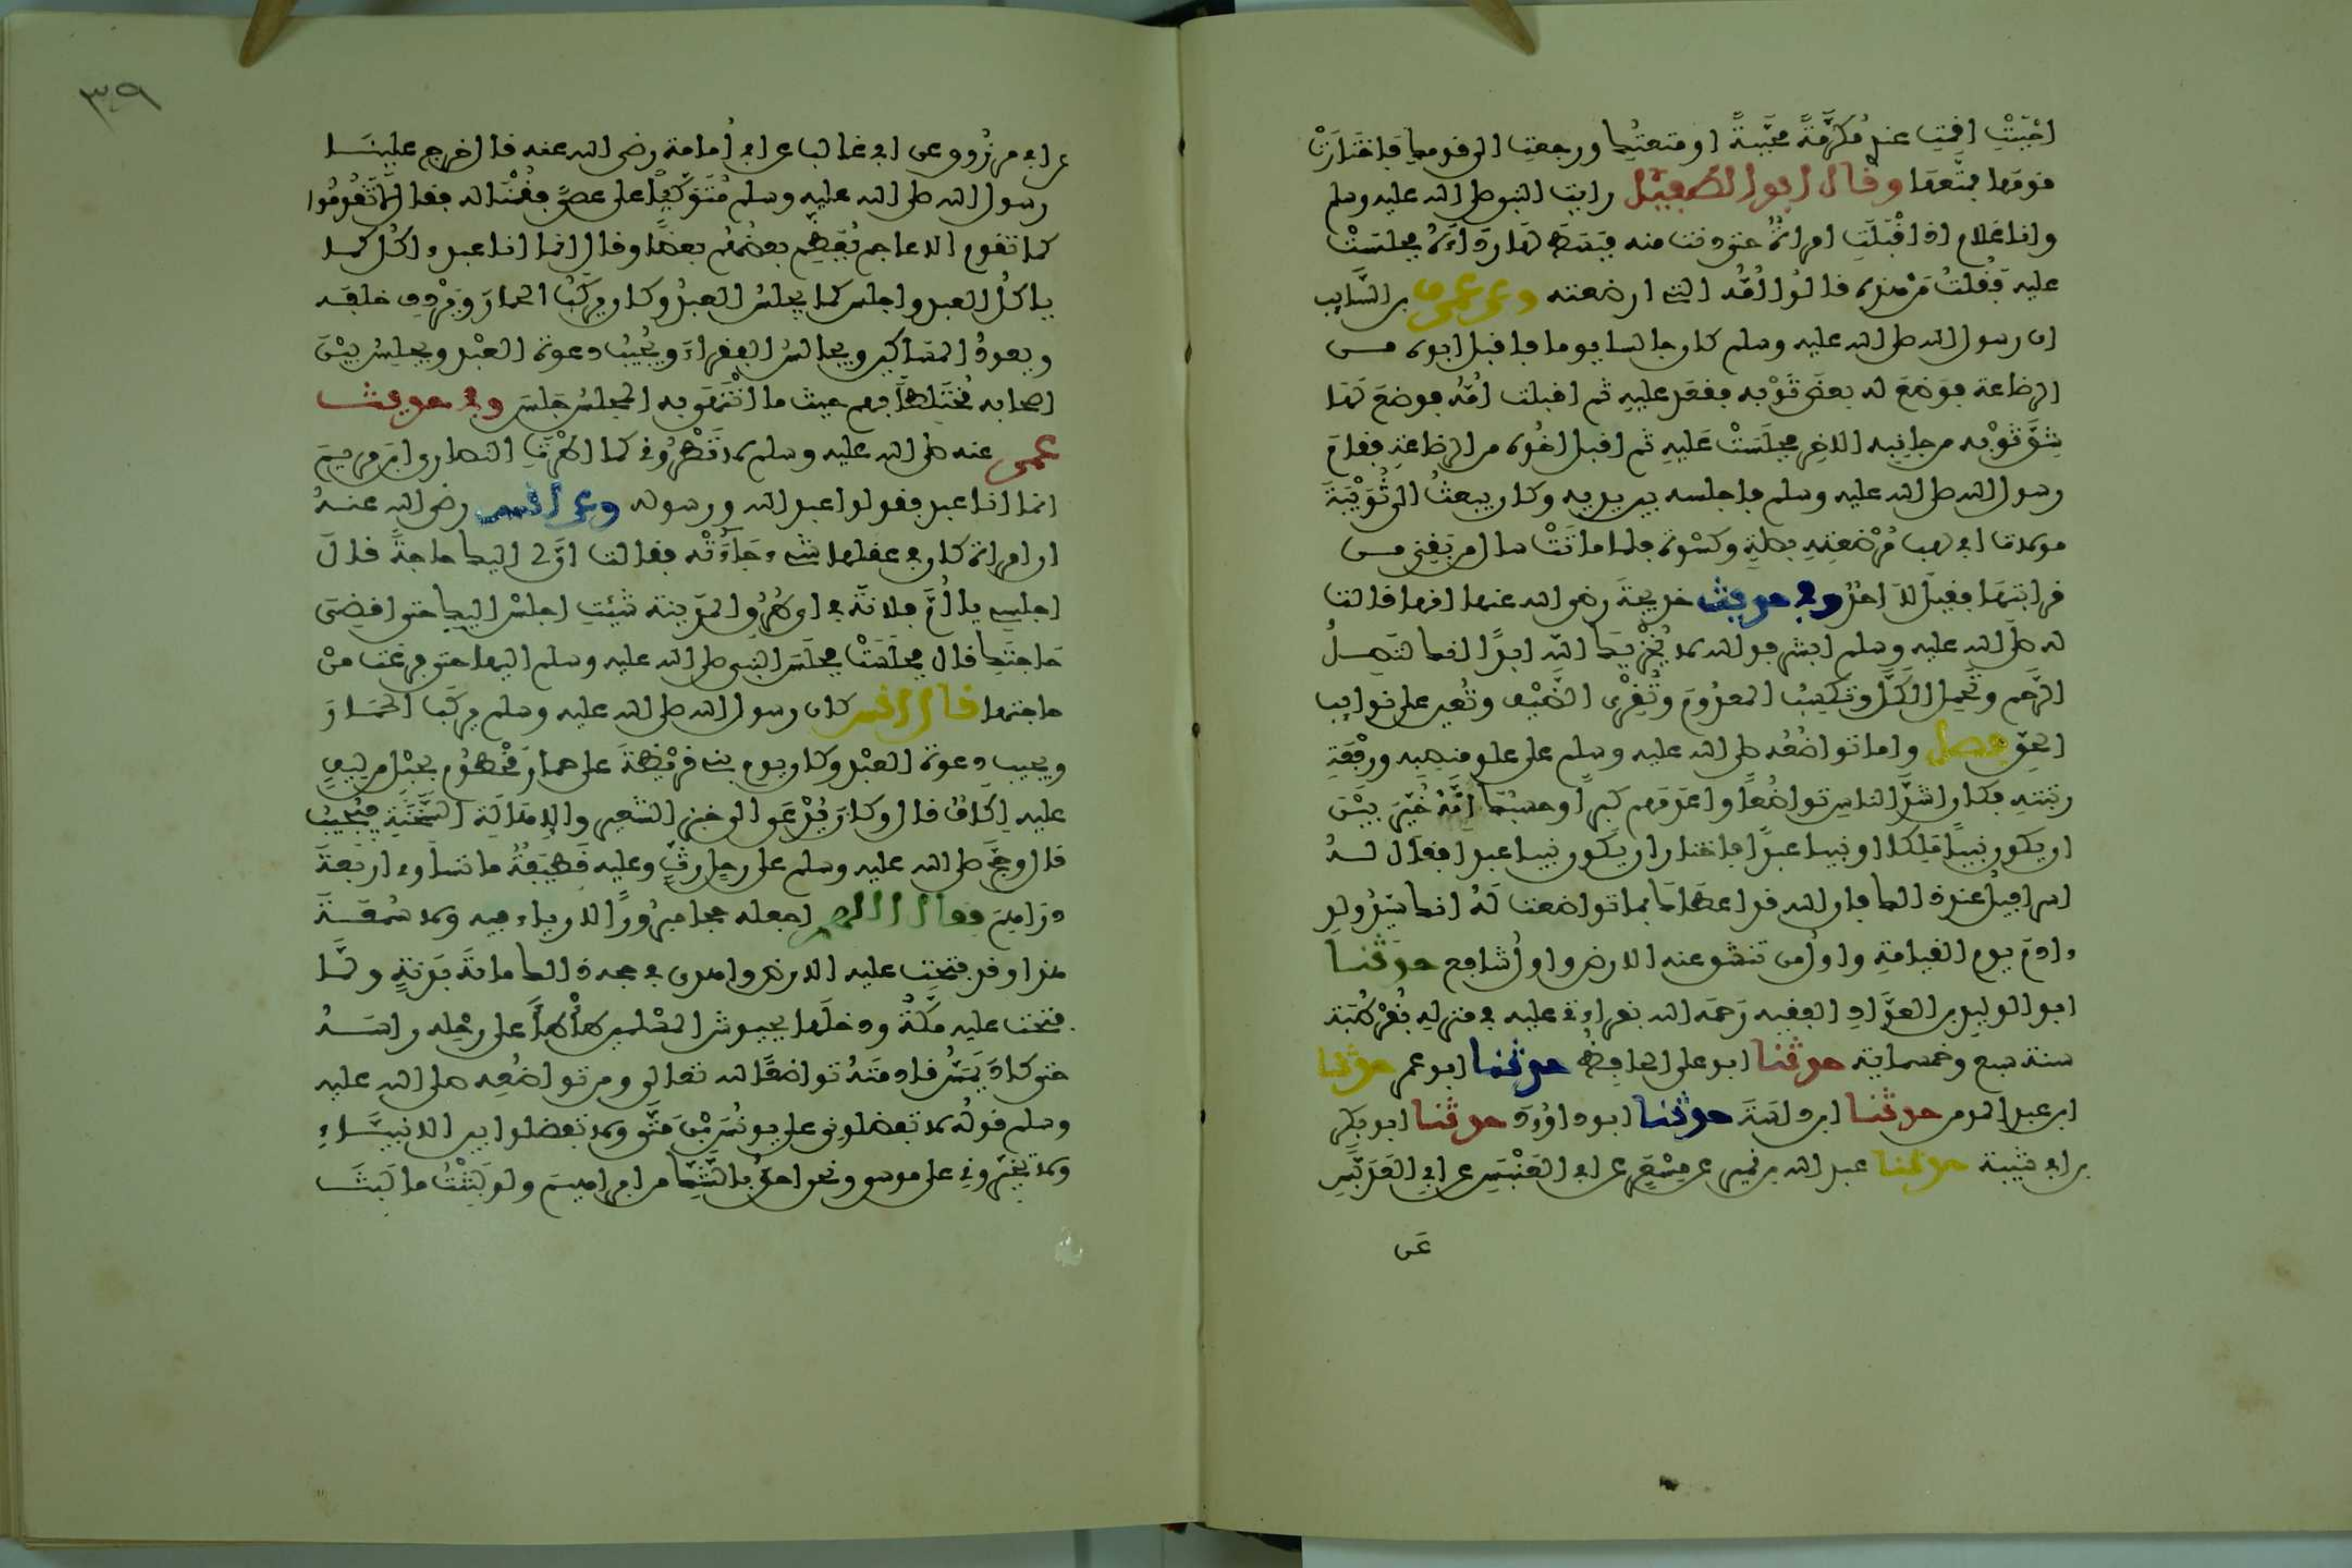 احببت اقمت عندي مكرمة محببة او متعتك ورجعت الى قومك فاختارت
قومها فمتعها وقال ابو الطفيل رايت النبي صلى الله عليه وسلم
وانا غلام اذ اقبلت امراة حتى دنت منه فبسط لها رداءه فجلست
عليه فقلت من هذه قالوا امه التي ارضعته وعن عمرو بن السايب
ان رسول الله صلى الله عليه وسلم كان جالسا يوما فاقبل ابوه من
الرضاعة فوضع له بعض ثوبه فقعد عليه ثم اقبلت امه فوضع لها
شق ثوبه من جانبه الاخر فجلست عليه ثم اقبل اخوه من الرضاعة فقام
رسول الله صلى الله عليه وسلم فاجلسه بين يديه وكان يبعث الى ثويبة
مولاة ابي لهب مرضعته بصلة وكسوة فلما ماتت سال من بقي من
قرابتها فقيل لا احد وفي حديث خديجة رضي الله عنها انها قالت
له صلى الله عليه وسلم ابشر فوالله لا يخزيك الله ابدا انك لتصل
الرحم وتحمل الكل وتكسب المعدوم وتقري الضيف وتعين على نوايب
الحق فصل واما تواضعه صلى الله عليه وسلم على علو منصبه ورفعة
رتبته فكان اشد الناس تواضعا واعدمهم كبرا وحسبك انه خير بين
ان يكون نبيا ملكا او نبيا عبدا فاختار ان يكون نبيا عبدا فقال له
اسرافيل عند ذلك فان الله قد اعطاك بما تواضعت له انك سيد ولد
ءادم يوم القيامة واول من تنشق عنه الارض واول شافع حدثنا
ابو الوليد بن العواد الفقيه رحمه الله بقراءتي عليه في منزله بقرطبة
سنة سبع وخمسماية حدثنا ابو علي الحافظ حدثنا ابو عمر حدثنا
ابن عبد المومن حدثنا ابن داسة حدثنا ابو داوود حدثنا ابو بكر
بن ابي شيبة حدثنا عبد الله بن نمير عن مسعر عن ابي العنبس عن ابي العدبس
عن
٣٩
عن ابي مرزوق عن ابي غالب عن ابي امامة رضي الله عنه قال خرج علينا
رسول الله صلى الله عليه وسلم متوكيا على عصى فقمنا له فقال لا تقوموا
كما تقوم الاعاجم يعظم بعضهم بعضا وقال انما انا عبد ءاكل كما
ياكل العبد واجلس كما يجلس العبد وكان يركب الحمار ويردف خلفه
ويعود المساكين ويجالس الفقراء ويجيب دعوة العبد ويجلس بين
اصحابه مختلطا بهم حيث ما انتهى به المجلس جلس وفي حديث
عمر عنه صلى الله عليه وسلم لا تطروني كما اطرت النصارى ابن مريم
انما انا عبد فقولوا عبد الله ورسوله وعن انس رضي الله عنه
ان امراة كان في عقلها شيء جاءته فقالت ان لي اليك حاجة قال
اجلسي يا ام فلانة في اي طرق المدينة شئت اجلس اليك حتى اقضي
حاجتك قال فجلست فجلس النبي صلى الله عليه وسلم اليها حتى فرغت من
حاجتها قال انس كان رسول الله صلى الله عليه وسلم يركب الحمار
ويجيب دعوة العبد وكان يوم بني قريظة على حمار مخطوم بحبل من ليف
عليه اكاف قال وكان يدعى الى خبز الشعير والاهالة السنخة فيجيب
قال وحج صلى الله عليه وسلم على رحل رث وعليه قطيفة ما تساوي اربعة
دراهم فقال اللهم اجعله حجا مبرورا لا رياء فيه ولا سمعة
هذا وقد فتحت عليه الارض واهدى في حجه ذلك مائة بدنة ولما
فتحت عليه مكة ودخلها بجيوش المسلمين طاطا على رحله راسه
حتى كاد يمس قادمته تواضعا لله تعالى ومن تواضعه صلى الله عليه
وسلم قوله لا تفضلوني على يونس بن متى ولا تفضلوا بين الانبياء
ولا تخيروني على موسى ونحن احق بالشك من ابراهيم ولو لبثت ما لبث